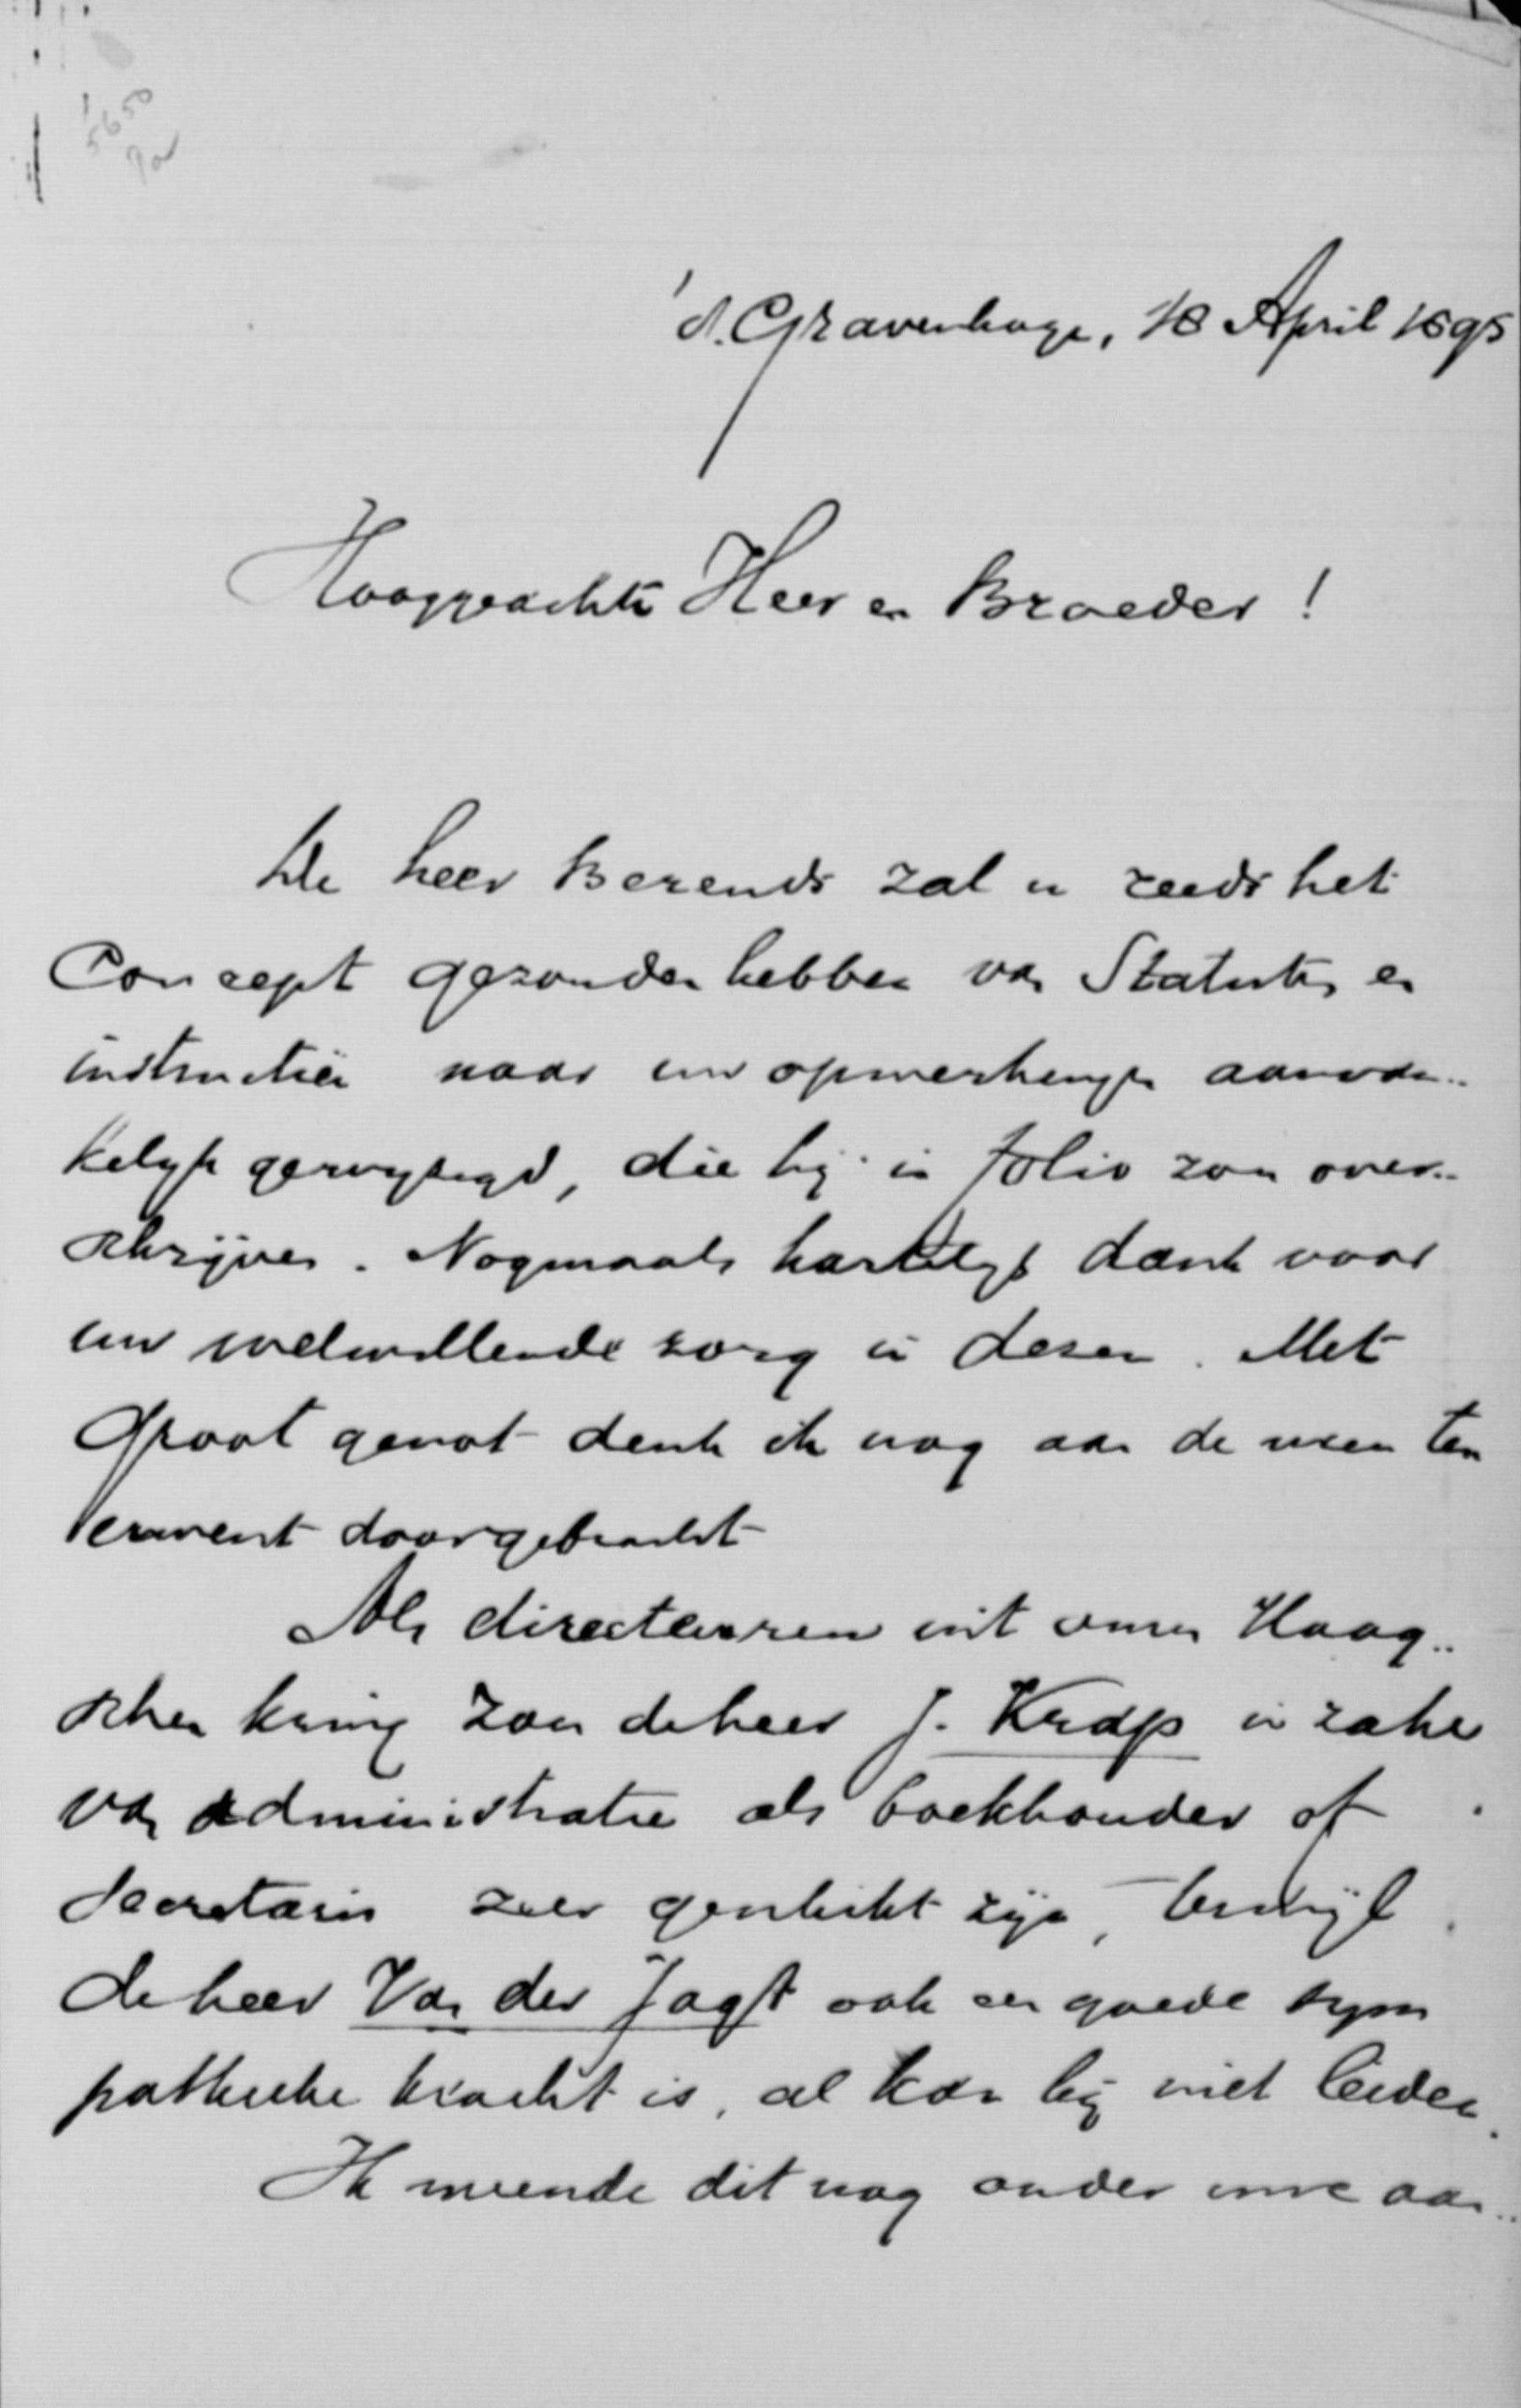 5650
's Gravenhage, 18 April 1895
Hooggeachte Heer en Broeder!
De heer Berends zal u reeds het
Concept gezonden hebben van Statuten en
instructiën naar uw opmerkingen aanvan-
kelijk gewijzigd, die hij in folio zou over-
schrijven. Nogmaals hartelijk dank voor
uw welwillende zorg in dezen. Met
groot genot denk ik nog aan de uren ten
uwent doorgebracht
Als directeuren uit onzen Haag-
schen kring zou de heer J. Krap in zake
van administratie als boekhouder of
Secretaris zeer geschikt zijn, terwijl
de heer Van der Jagt ook een goede sym
pathieke kracht is, al kan hij niet leiden.
Ik meende dit nog onder uwe aan-